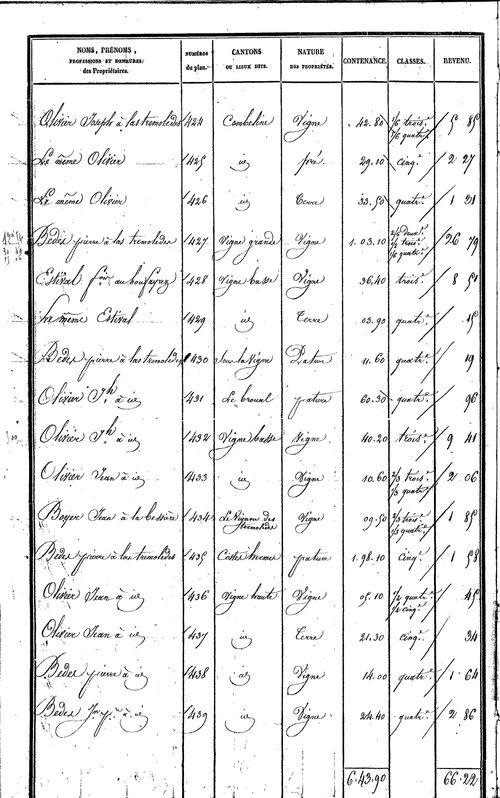 NOMS, PRÉNOMS, PROFESSIONS ET DEMEURES des Propriétaires. NUMÉROS du plan. CANTONS OU LIEUX DITS. NATURE DES PROPRIÉTÉS. CONTENANCE. CLASSES. REVENU.
Olivier Joseph à las tremolèdes 424 Combeline Vigne 42.80 1/6 trois.e 5 85
5/6 quatr.e
Le même Olivier 425 id pré 29.10 cinq.e 2 27
Le même Olivier 426 id Terre 33.50 quatr.e 1 21
Bedes pierre à las tremolèdes 427 Vigne grande Vigne 1.03.10 trois.e 26 79
quatr.e
Estival au 428 Vigne basse Vigne 36.40 trois.e 8 51
Le même Estival 429 id Terre 03.90 quatr.e 15
Bedes pierre à las tremolèdes 430 Sous la Vigne Pature 11.60 quatr.e 19
Olivier Jh à id 431 Le broual pature 60.30 quatr.e 96
Olivier Jh à id 432 Vigne basse Vigne 40.20 trois.e 9 41
Olivier Jean à id 433 id Vigne 10.60 2/3 trois.e 2 06
1/3 quatr.e
Boyer Jean à la Bessière 434 Le Vignou des tremolèdes Vigne 09.50 2/3 trois.e 1 85
1/3 quatr.e
Bedes pierre à las tremolèdes 435 pature 1.98.10 cinq.e 1 58
Olivier Jean à id 436 Vigne haute Vigne 05.10 1/2 quatr.e 45
1/2 cinq.e
Olivier Jean à id 437 id Terre 21.30 cinq.e 34
Bedes pierre à id 438 id Vigne 14.00 quatr.e 1 64
Bedes à id 439 id Vigne 24.40 quatr.e 2 86
6.43.90 66-22